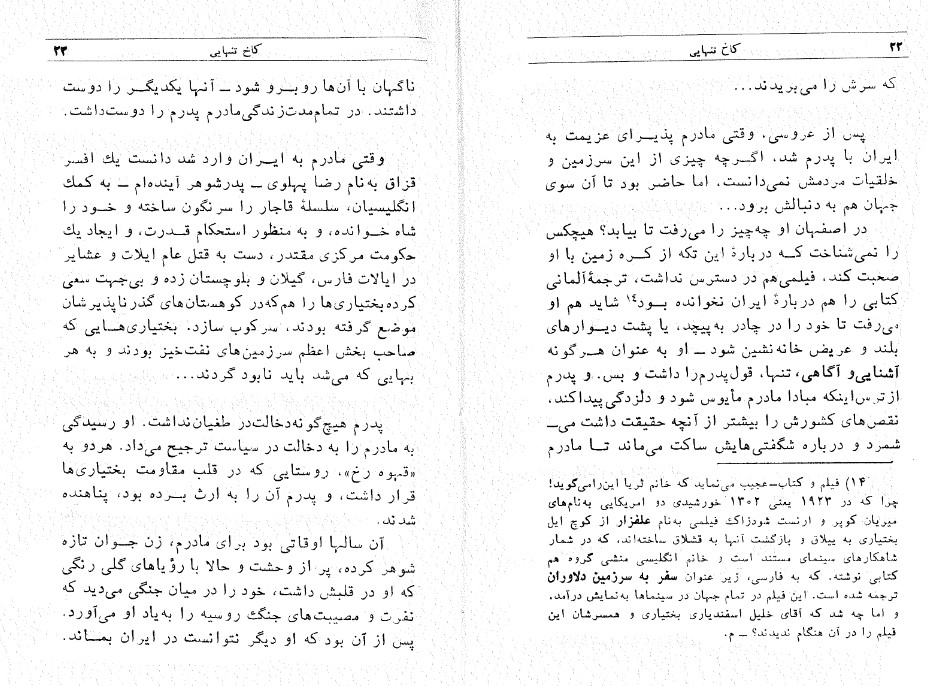 ۲۲
کاخ تنهایی
که سرش را می‌بریدند...
پس از عروسی، وقتی مادرم پذیـرای عزیمت به
ایران با پدرم شد، اگـرچه چیزی از این سرزمین و
خلقیات مردمش نمی‌دانست، اما حاضر بود تا آن سوی
جهان هم به دنبالش برود...
در اصفهان او چه‌چیز را می‌رفت تا بیابد؟ هیچکس
را نمی‌شناخت کـه دربارهٔ این تکه از کـره زمین با او
صحبت کند. فیلمی‌هم در دسترس نداشت، ترجمهٔ‌آلمانی
کتابی را هم دربارهٔ ایران نخوانده بود۱۴ شاید هم او
می‌رفت تا خود را در چادر به‌پیچد، یا پشت دیـوارهای
بلند و عریض خانه‌نشین شود ـ او به عنوان هـرگونه
آشنایی‌و آگاهی، تنها، قول‌پدرم‌را داشت و بس. و پدرم
ازترس‌اینکه مبادا مادرم مأیوس شود و دلزدگی‌پیدا‌کند،
نقص‌های کشورش را بیشتر از آنچه حقیقت داشت می‌ـ
شمرد و درباره شگفتی‌هایش ساکت می‌ماند تـا مادرم
۱۴) فیلم و کتاب-عجیب می‌نماید که خانم ثریا این‌را‌می‌گوید!
چرا که در ۱۹۲۳ یعنی ۱۳۰۲ خورشیدی دو امریکایی به‌نام‌های
میریان کوپر و ارنست شودزاک فیلمی به‌نام علفزار از کوچ ایل
بختیاری به ییلاق و بازگشت آنها به قشلاق ساخته‌اند، که در شمار
شاهکارهای سینمای مستند است و خانم انگلیسی منشی گروه هم
کتابی نوشته. که به فارسی، زیر عنوان سفر به سرزمین دلاوران
ترجمه شده است. این فیلم در تمام جهان در سینماها به‌نمایش درآمد.
و اما چه شد که آقای خلیل اسفندیاری بختیاری و همسرشان این
فیلم را در آن هنگام ندیدند؟ ـ م.
۲۳
کاخ تنهایی
ناگهان با آن‌ها روبـرو شود ـ آنها یکدیگـر را دوست
داشتند. در تمام‌مدت‌زندگی‌مادرم پدرم را دوست‌داشت.
وقتی مادرم به ایـران وارد شد دانست یك افسر
قزاق به‌نام رضا پهلوی ـ پدرشوهر آینده‌ام ـ به کمك
انگلیسیان، سلسلهٔ قاجار را سرنگون ساخته و خـود را
شاه خـوانده، و به منظور استحکام قـدرت، و ایجاد یك
حکومت مرکزی مقتدر، دست به قتل عام ایلات و عشایر
در ایالات فارس، گیلان و بلوچستان زده و بی‌جهت سعی
کرده‌بختیاری‌ها را هم‌که‌در کوهستان‌های گذرناپذیرشان
موضع گرفته بودند، سرکوب سازد. بختیاری‌هـایی که
صاحب بخش اعظم سرزمین‌های نفت‌خیز بودند و به هر
بهایی که می‌شد باید نابود گردند...
پدرم هیچ‌گونه‌دخالت‌در طغیان‌نداشت. او رسیدگی
به مادرم را به دخالت در سیاست ترجیح می‌داد. هردو به
«قهوه رخ»، روستایی که در قلب مقاومت بختیاری‌ها
قرار داشت، و پدرم آن را به ارث بـرده بود، پناهنده
شدند.
آن سالها اوقاتی بود برای مادرم، زن جـوان تازه
شوهر کرده، پر از وحشت و حالا با رؤیاهای گلی رنگی
که او در قلبش داشت، خود را در میان جنگی می‌دید که
نفرت و مصیبت‌های جنگ روسیه را به‌یاد او می‌آورد.
پس از آن بود که او دیگر نتوانست در ایران بمـاند.